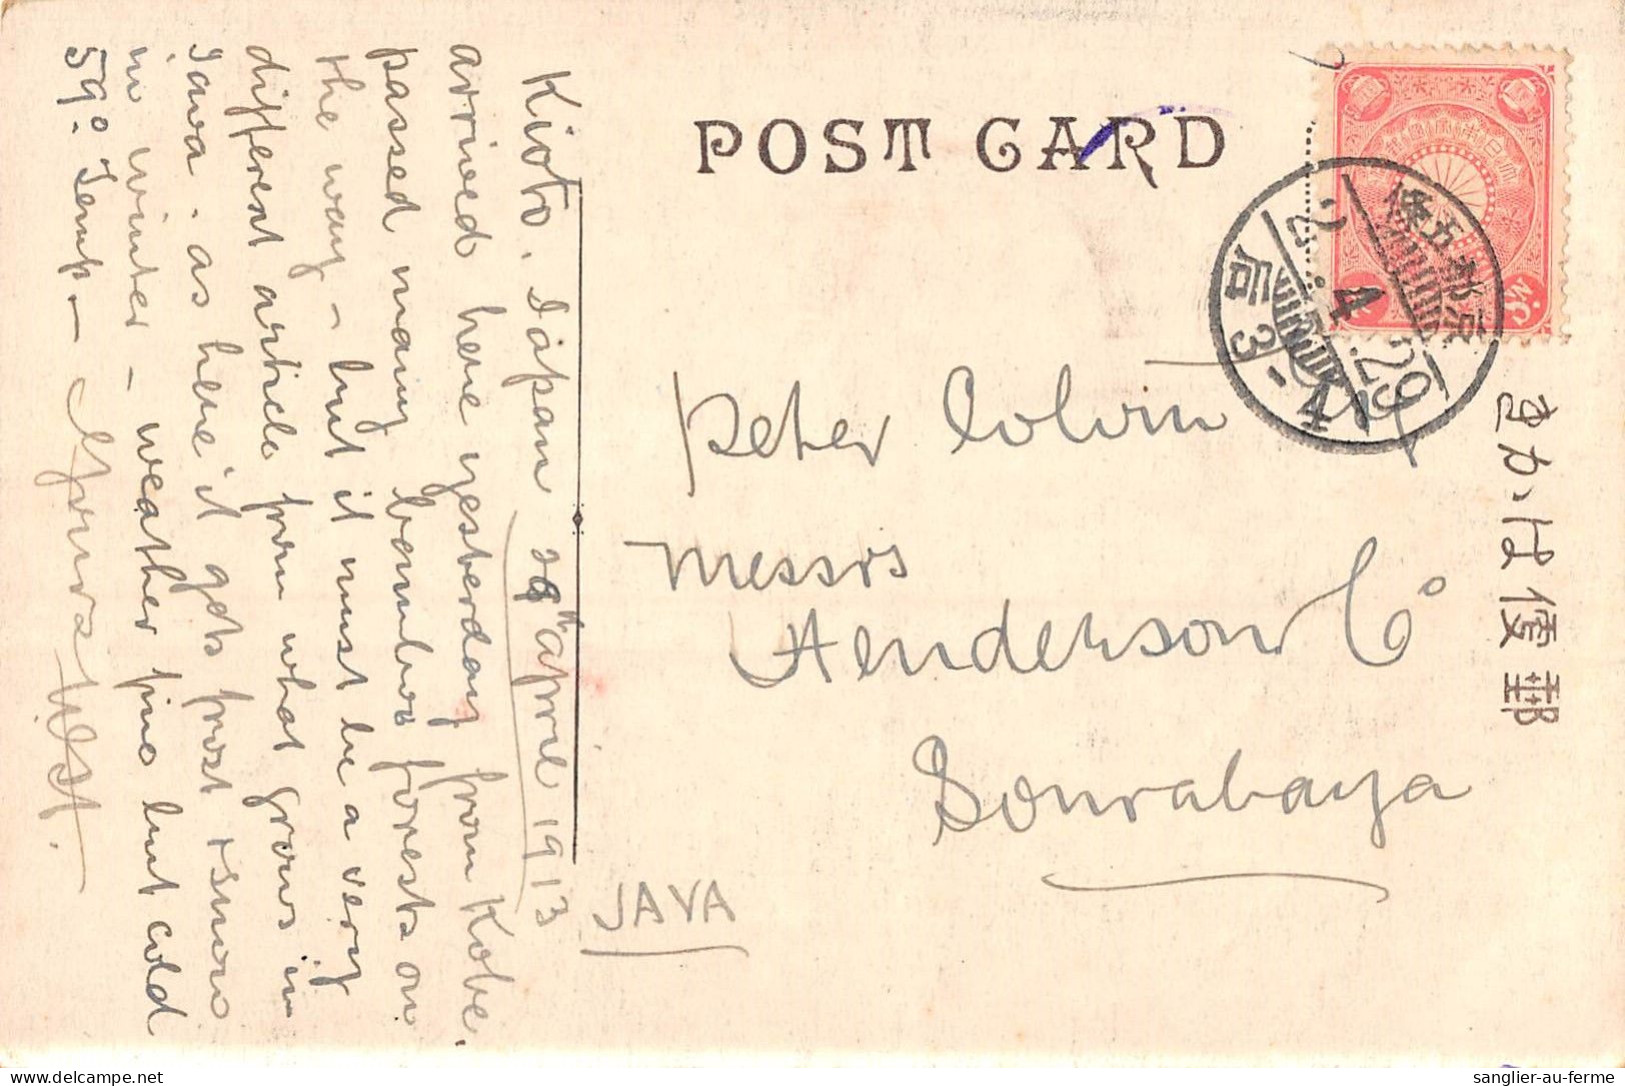 POST CARD
Kioto. Japan 29th April 1913
arrived here yesterday from Kobe.
passed many bamboo forests on
the way - but it must be a very
different article from what grows in
Java - as here it gets frost + snow
in winter - weather fine but cold
59° Temp -
Yours
Peter Colvin
Messrs
Henderson Co
Sourabaya
JAVA
きかは便郵
京都五條
2.4.29
后3-4
sanglier-au-ferme